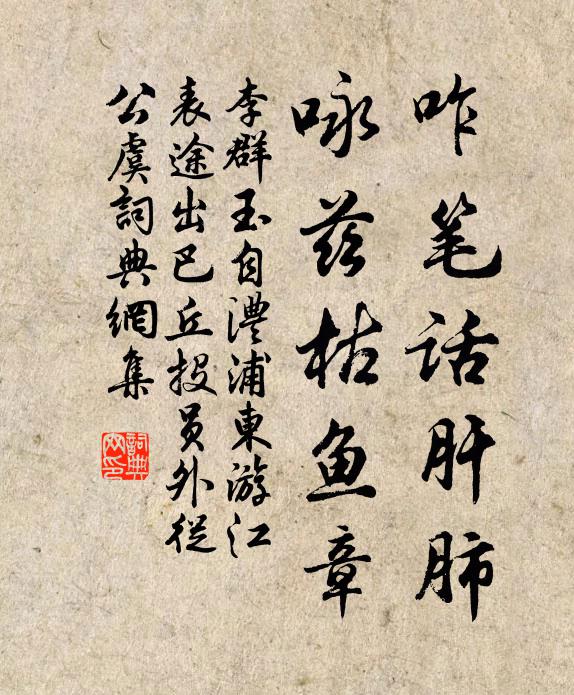 咋笔话肝肺
咏兹枯鱼章
李群玉自澧浦東游江
表途出巴丘投员外従
公虞詞典網集
詞典網印